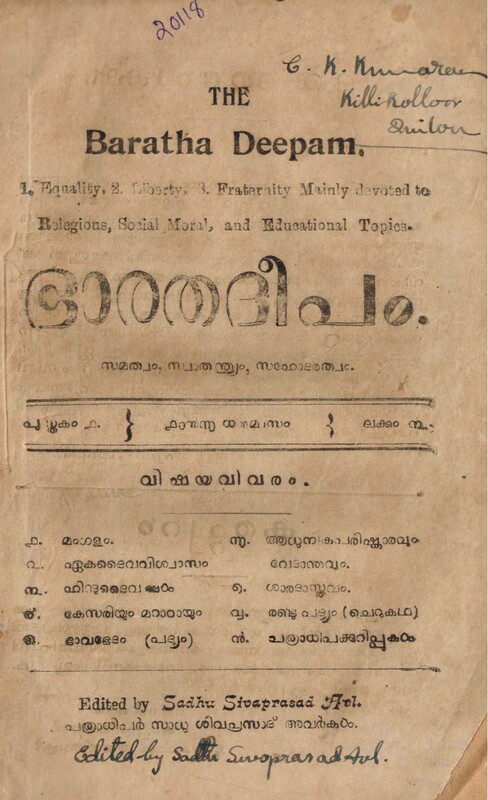 20118
C. K. Kumaran
Killikolloor
Quilon
THE
Baratha Deepam.
1. Equality, 2. Liberty, 3. Fraternity Mainly devoted to
Relegious, Social Moral, and Educational Topics.
ഭാരതദീപം.
സമത്വം, സ്വാതന്ത്ര്യം, സഹോദരത്വം.
പുസ്തകം ൧. ലക്കം ൩.
വിഷയവിവരം.
൧. മംഗളം.
൨. ഏകദൈവവിശ്വാസം
൩. ഹിന്ദുദൈവങ്ങൾ
൪. കേസരിയും മറാഠായും
൫. ഭാവഭേദം (പദ്യം)
൬. ആധുനികപരിഷ്കാരവും
വേദാന്തവും.
൭. ശാരദാസ്തവം.
൮. രണ്ടു പദ്യം (ചെറുകഥ)
൯. പത്രാധിപക്കുറിപ്പുകൾ
Edited by Sadhu Sivaprasad Avl.
പത്രാധിപർ സാധു ശിവപ്രസാദ് അവർകൾ.
Edited by Sadhu Sivaprasad Avl.